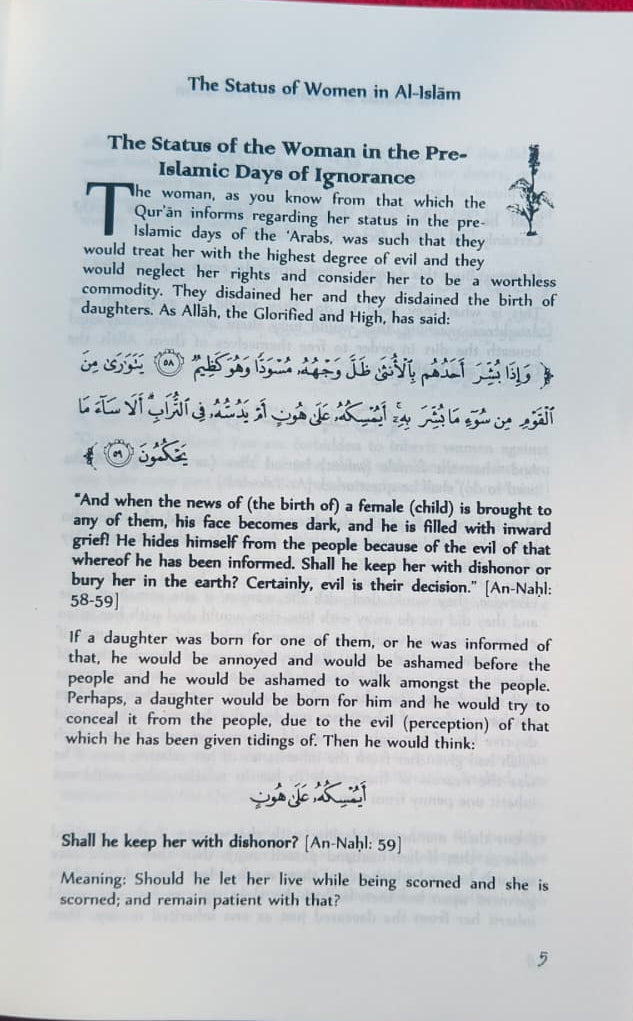 The Status of Women in Al-Islām
The Status of the Woman in the Pre-
Islamic Days of Ignorance
The woman, as you know from that which the
Qur'ān informs regarding her status in the pre-
Islamic days of the 'Arabs, was such that they
would treat her with the highest degree of evil and they
would neglect her rights and consider her to be a worthless
commodity. They disdained her and they disdained the birth of
daughters. As Allāh, the Glorified and High, has said:
﴿ وَإِذَا بُشِّرَ أَحَدُهُم بِٱلْأُنثَىٰ ظَلَّ وَجْهُهُۥ مُسْوَدًّا وَهُوَ كَظِيمٌ ٥٨ يَتَوَٰرَىٰ مِنَ
ٱلْقَوْمِ مِن سُوٓءِ مَا بُشِّرَ بِهِۦٓ أَيُمْسِكُهُۥ عَلَىٰ هُونٍ أَمْ يَدُسُّهُۥ فِى ٱلتُّرَابِ ۗ أَلَا سَآءَ مَا
يَحْكُمُونَ ٥٩ ﴾
"And when the news of (the birth of) a female (child) is brought to
any of them, his face becomes dark, and he is filled with inward
grief! He hides himself from the people because of the evil of that
whereof he has been informed. Shall he keep her with dishonor or
bury her in the earth? Certainly, evil is their decision." [An-Naḥl:
58-59]
If a daughter was born for one of them, or he was informed of
that, he would be annoyed and would be ashamed before the
people and he would be ashamed to walk amongst the people.
Perhaps, a daughter would be born for him and he would try to
conceal it from the people, due to the evil (perception) of that
which he has been given tidings of. Then he would think:
أَيُمْسِكُهُۥ عَلَىٰ هُونٍ
Shall he keep her with dishonor? [An-Naḥl: 59]
Meaning: Should he let her live while being scorned and she is
scorned; and remain patient with that?
5